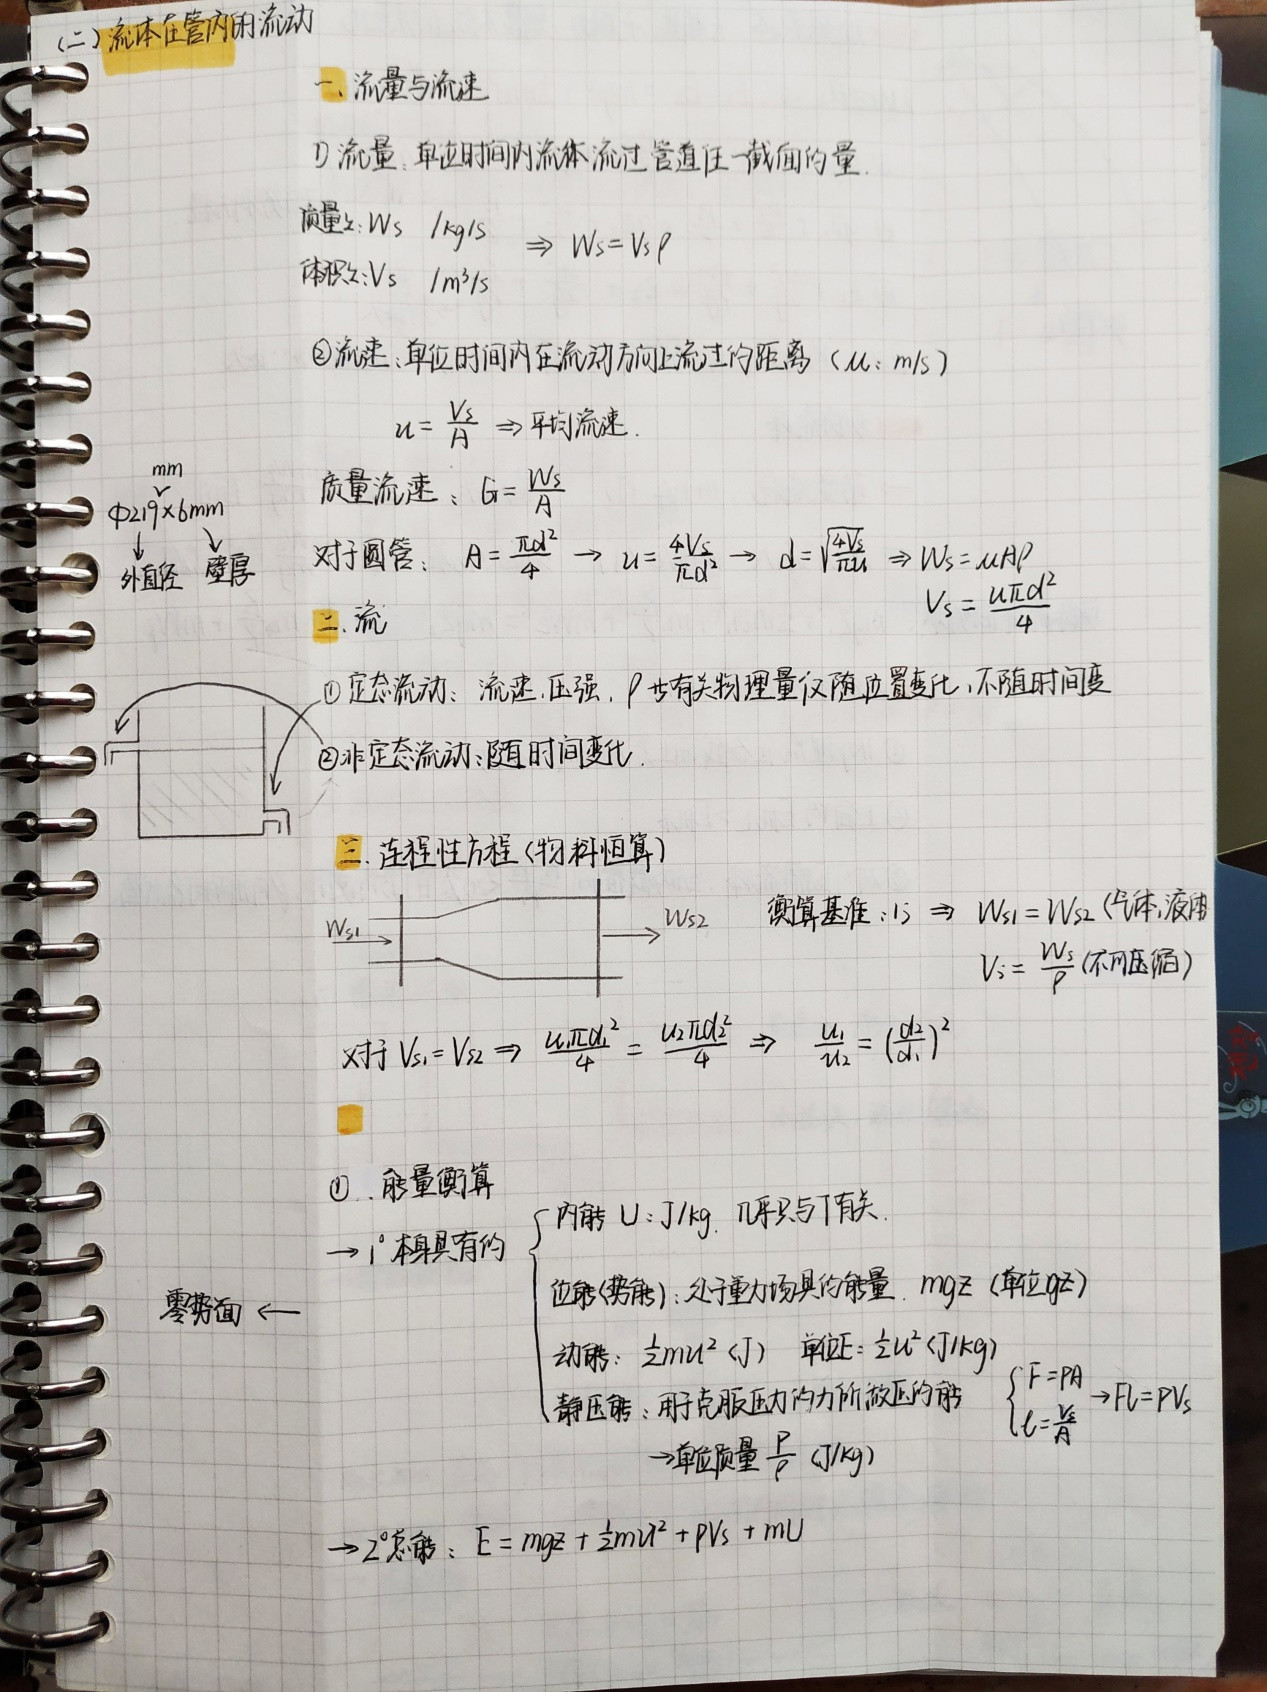 (二)流体在管内的流动
一、流量与流速
① 流量:单位时间内流体流过管道任一截面的量.
质量~:Ws /kg/s ⇒ Ws=Vsρ
体积~:Vs /m³/s
②流速:单位时间内在流动方向上流过的距离(u: m/s)
u = Vs/A ⇒ 平均流速.
质量流速: G = Ws/A
mm
Φ219×6mm
外直径 壁厚
对于圆管: A = πd²/4 → u = 4Vs/πd² → d = √(4Vs/πu) ⇒ Ws = uAρ
Vs = uπd²/4
二.流
①定态流动: 流速.压强. ρ 有关物理量仅随位置变化,不随时间变
②非定态流动:随时间变化.
三.连程性方程(物料恒算)
Ws1 → → Ws2
衡算基准:1s ⇒ Ws1 = Ws2 (气体,液体
Vs = Ws/ρ (不可压缩)
对于 Vs1=Vs2 ⇒ u1πd1²/4 = u2πd2²/4 ⇒ u1/u2 = (d2/d1)²
①.能量衡算
→ 1°本身具有的
内能 U: J/kg. 几乎只与T有关.
位能(势能):处于重力场具的能量. mgz (单位gz)
零势面 ←
动能: ½mu² (J) 单位E: ½u² (J/kg)
静压能:用于克服压力的力所做压的能 F=PA l=Vs/A → Fl=PVs
→单位质量 P/ρ (J/kg)
→ 2°总能: E = mgz + ½mu² + PVs + mU